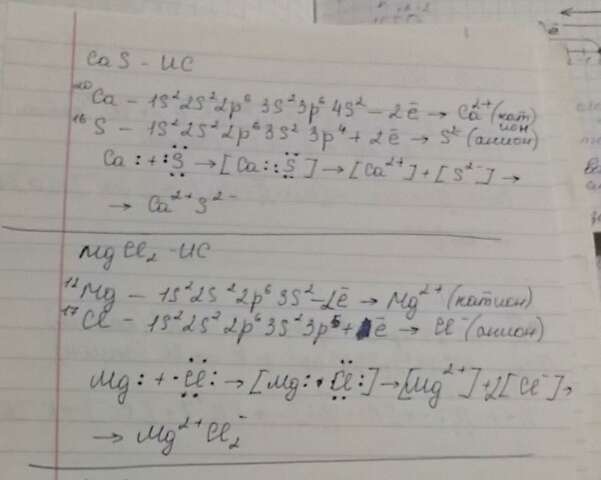 CaS - ИС
²⁰Ca - 1S²2S²2p⁶3S²3p⁶4S² - 2ē → Ca²⁺ (катион)
¹⁶S - 1S²2S²2p⁶3S²3p⁴ + 2ē → S²⁻ (анион)
Ca : + :S: → [Ca : :S:] → [Ca²⁺] + [S²⁻] →
→ Ca²⁺S²⁻
MgCl₂ - ИС
¹²Mg - 1S²2S²2p⁶3S² - 2ē → Mg²⁺ (катион)
¹⁷Cl - 1S²2S²2p⁶3S²3p⁵ + ē → Cl⁻ (анион)
Mg : + ·Cl: → [Mg : ·Cl:] → [Mg²⁺] + 2[Cl⁻] →
→ Mg²⁺Cl₂⁻